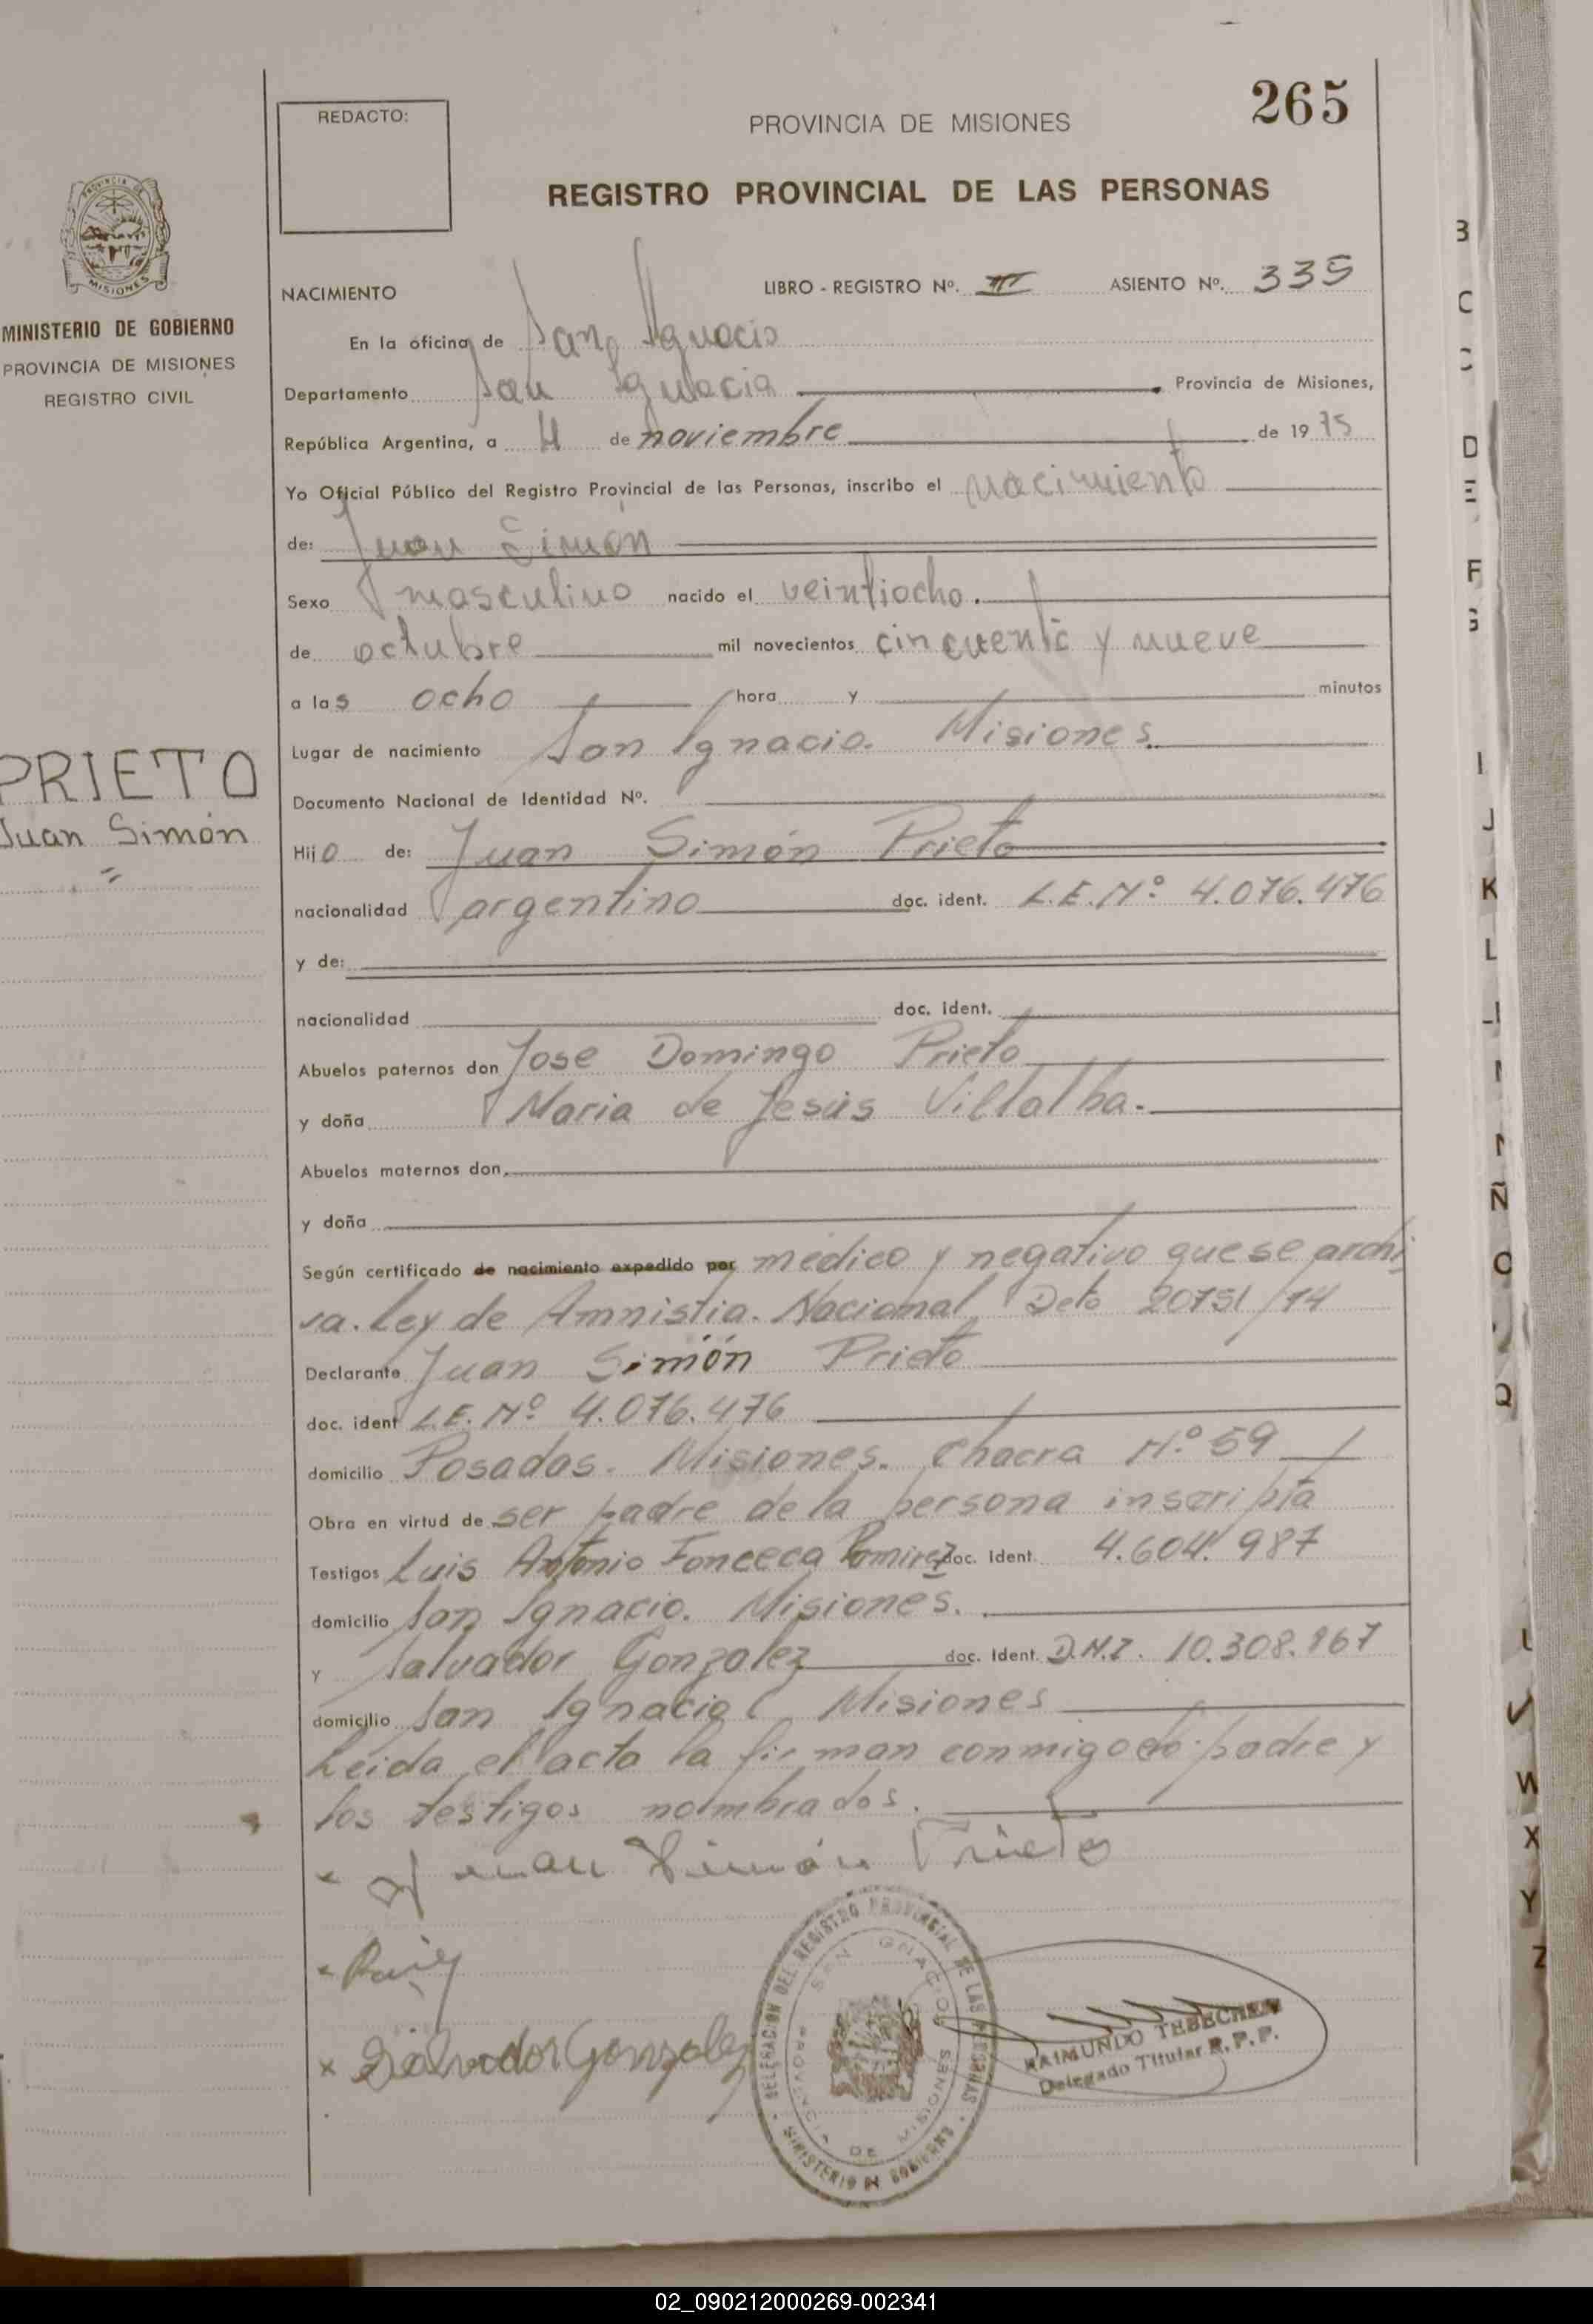 265
REDACTO:
PROVINCIA DE MISIONES
REGISTRO PROVINCIAL DE LAS PERSONAS
PROVINCIA DE
MISIONES
MINISTERIO DE GOBIERNO
PROVINCIA DE MISIONES
REGISTRO CIVIL
NACIMIENTO LIBRO - REGISTRO Nº. III ASIENTO Nº. 335
En la oficina de San Ignacio
Departamento San Ignacio Provincia de Misiones,
República Argentina, a 4 de noviembre de 1975
Yo Oficial Público del Registro Provincial de las Personas, inscribo el nacimiento
de: Juan Simón
Sexo masculino nacido el veintiocho.
de octubre mil novecientos cincuenta y nueve
a las ocho hora y minutos
Lugar de nacimiento San Ignacio. Misiones.
PRIETO
Juan Simón
Documento Nacional de Identidad Nº.
Hijo de: Juan Simón Prieto
nacionalidad argentino doc. ident. L.E. Nº. 4.076.476
y de:
nacionalidad doc. ident.
Abuelos paternos don Jose Domingo Prieto
y doña Maria de Jesús Villalba.
Abuelos maternos don
y doña
Según certificado de nacimiento expedido por medico y negativo que se archi
va. Ley de Amnistia. Nacional Dcto 20751/74
Declarante Juan Simón Prieto
doc. ident L.E. Nº. 4.076.476
domicilio Posadas. Misiones. Chacra Nº. 59
Obra en virtud de ser padre de la persona inscripta
Testigos Luis Antonio Fonceca Ramirez doc. Ident. 4.604.987
domicilio San Ignacio. Misiones.
y Salvador Gonzalez doc. Ident. D.N.I. 10.308.867
domicilio San Ignacio Misiones
Leida el acta la firman conmigo el padre y
los testigos nombrados.
Juan Simón Prieto
x Salvador Gonzalez
DELEGACION DEL REGISTRO PROVINCIAL DE LAS PERSONAS
SAN IGNACIO
PROVINCIA DE MISIONES
MINISTERIO DE GOBIERNO
RAIMUNDO TEBECHERI
Delegado Titular R. P. P.
B
C
D
E
F
G
I
J
K
L
Ñ
O
Q
W
X
Y
Z
02_090212000269-002341